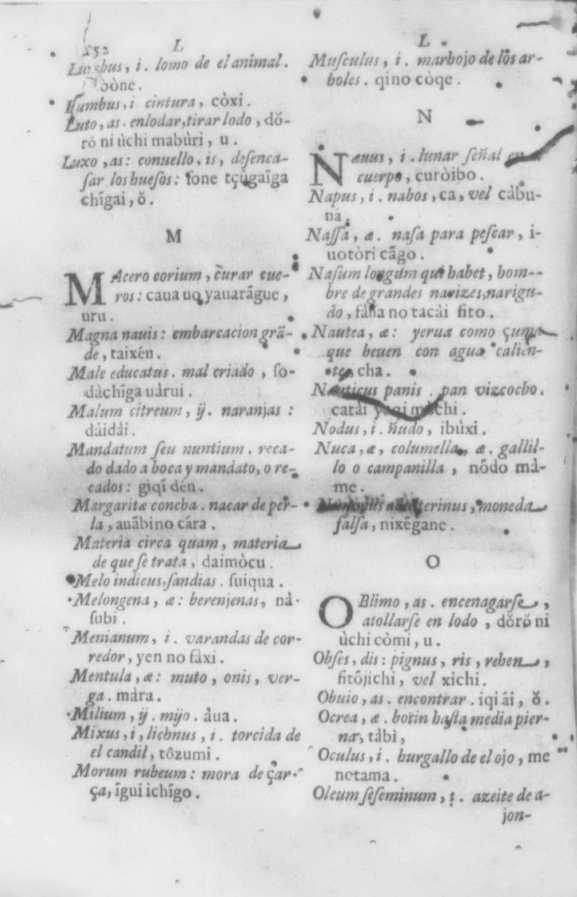 152
L
bus, i. lomo de el animal.
bòne.
Lumbus, i cintura, còxi.
Luto, as. enlodar, tirar lodo, dŏ-
rŏ ni ùchi mabùri, u.
Luxo, as: conuello. is, desenca-
sar los huesos: fone tçùgaîga
chîgai, ŏ.
M
MAcero corium, curar cue-
ros: caua uo yauarâgue,
uru.
Magna nauis: embarcacion grã-
de, taixèn.
Male educatus. mal criado, fo-
dàchîga uàrui.
Malum citreum, ÿ. naranjas:
dàidài.
Mandatum seu nuntium. reca-
do dado a boca y mandato, o re-
cados: giqi dèn.
Margaritæ concha. nacar de per-
la, auâbino cára.
Materia circa quam, materia
de que se trata, daimòcu.
Melo indicus, sandias. suiqua.
Melongena, æ: berenjenas, nà-
subi.
Menianum, i. varandas de cor-
redor, yen no fàxi.
Mentula, æ: muto, onis, ver-
ga. màra.
Milium, ÿ. mijo. àua.
Mixus, i, lichnus, i. torcida de
el candil, tôzumi.
Morum rubeum: mora de çar-
ça, îgui ichîgo.
L
Musculus, i. marhojo de los ar-
boles. qino còqe.
N
NÆuus, i. lunar señal
cuerpo, curòibo.
Napus, i. nabos, ca, vel càbu-
na.
Nassa, æ. nasa para pescar, i-
uotòri câgo.
Nasum longum qui habet, hom-
bre de grandes narizes, narigu-
do, fàna no tacài fito.
Nautea, æ: yerua como çuma
que beuen con agua calien-
te, cha.
Nauticus panis. pan vizcocho.
catài mòchi.
Nodus, i. ñudo, ibùxi.
Nuca, æ, columella, æ. gallil-
lo o campanilla, nôdo mà-
me.
adulterinus, moneda
falsa, nixêgane.
O
OBlimo, as. encenagarse,
atollarse en lodo, dŏrŏ ni
ùchi còmi, u.
Obses, dis: pignus, ris, rehen,
fitôjichi, vel xichi.
Obuio, as. encontrar. iqi ãi, ŏ.
Ocrea, æ. botin hasta media pier-
na, tàbì,
Oculus, i. hurgallo de el ojo, me
notama.
Oleum seseminum, i. azeite de a-
jon-